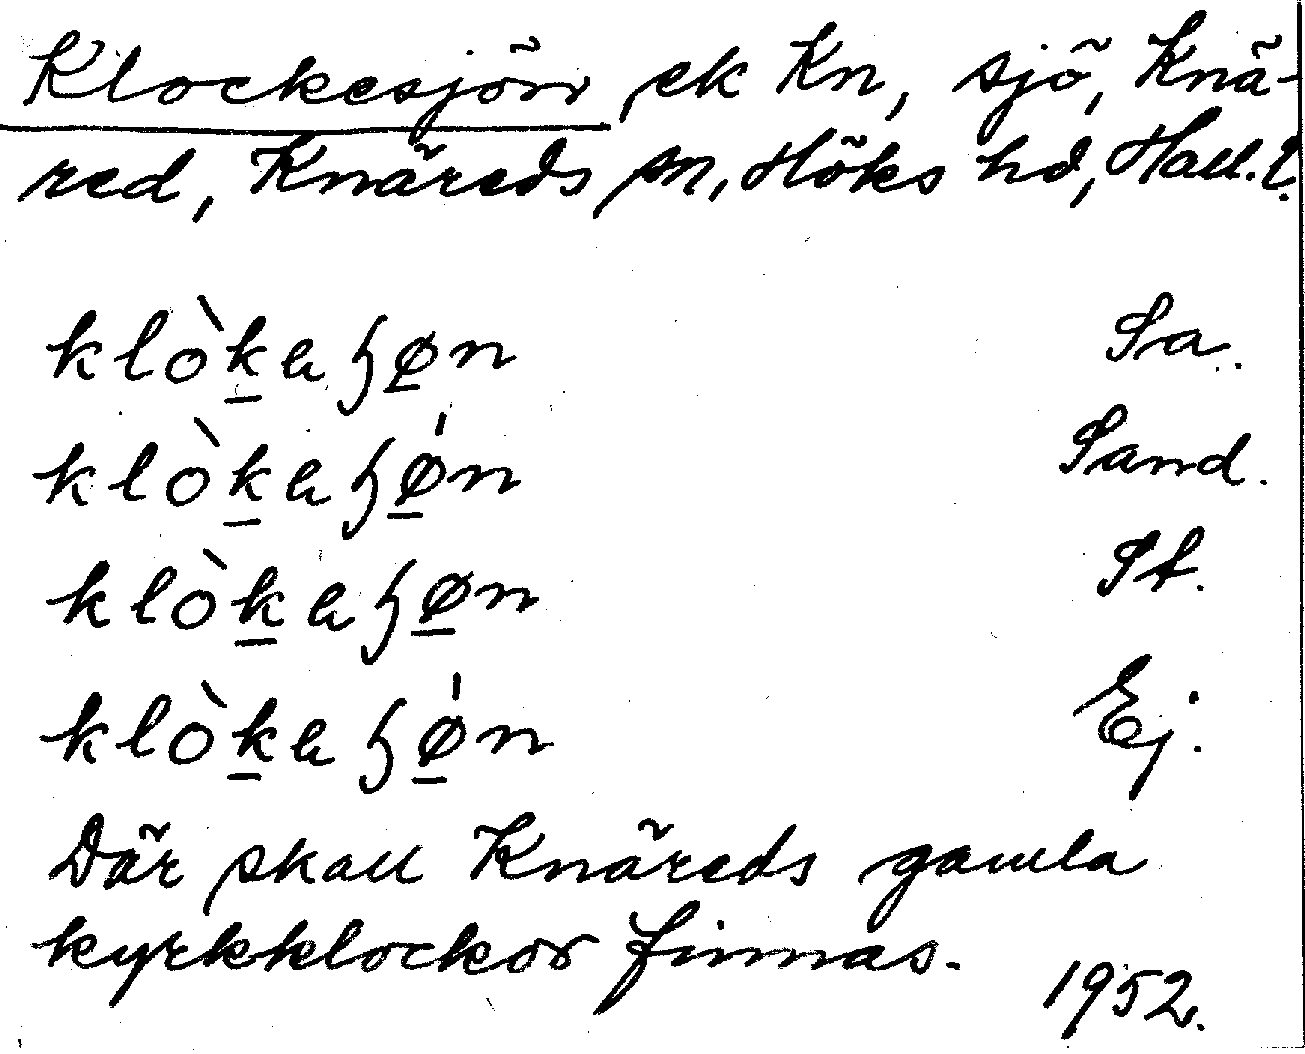 Klockesjön, ek Kn, sjö, Knä-
red, Knäreds sn, Höks hd, Hall. l.
klòk̲aʖø̲n Sa.
klòk̲aʖǿ̲n Sand.
klòk̲aʖø̲n St.
klòk̲aʖǿ̲n Ej.
Där skall Knäreds gamla
kyrkklockor finnas.
1952.